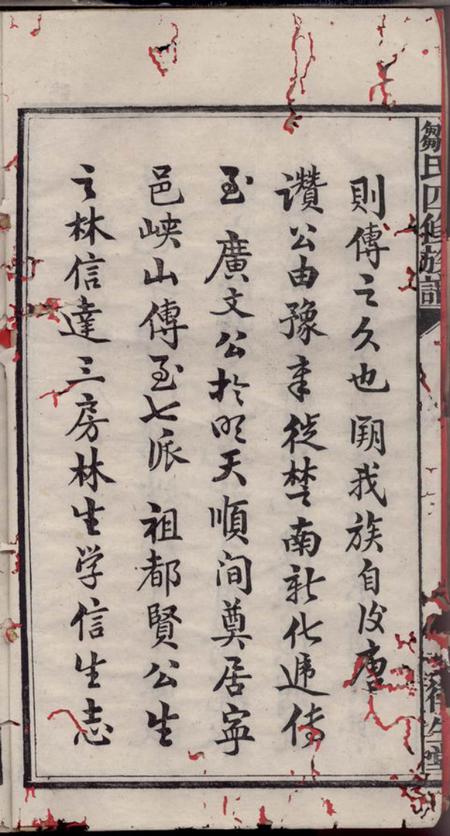 鄒氏四修族譜
則傳之久也閱我族自後唐
讚公由豫章徙楚南新化遞傳
至 廣文公於明天順间奠居寧
邑峡山傳至七派 祖都賢公生
之林信達三房林生学信生志